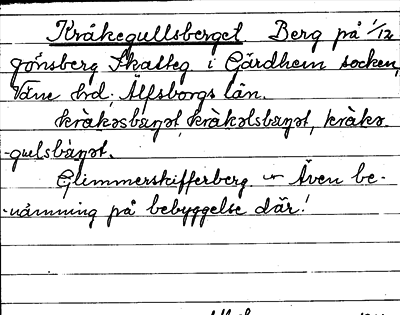 Kråkegullsberget Berg på 1/12
Jonsberg Skatteg i Gärdhem socken,
Väne hd, Älfsborgs län.
kràkəsbæ̀rjət, kràkəlsbæ̀rjət, kràkə-
-gulsbæ̀rjət.
Glimmerskifferberg ~ Även be-
-nämning på bebyggelse där!